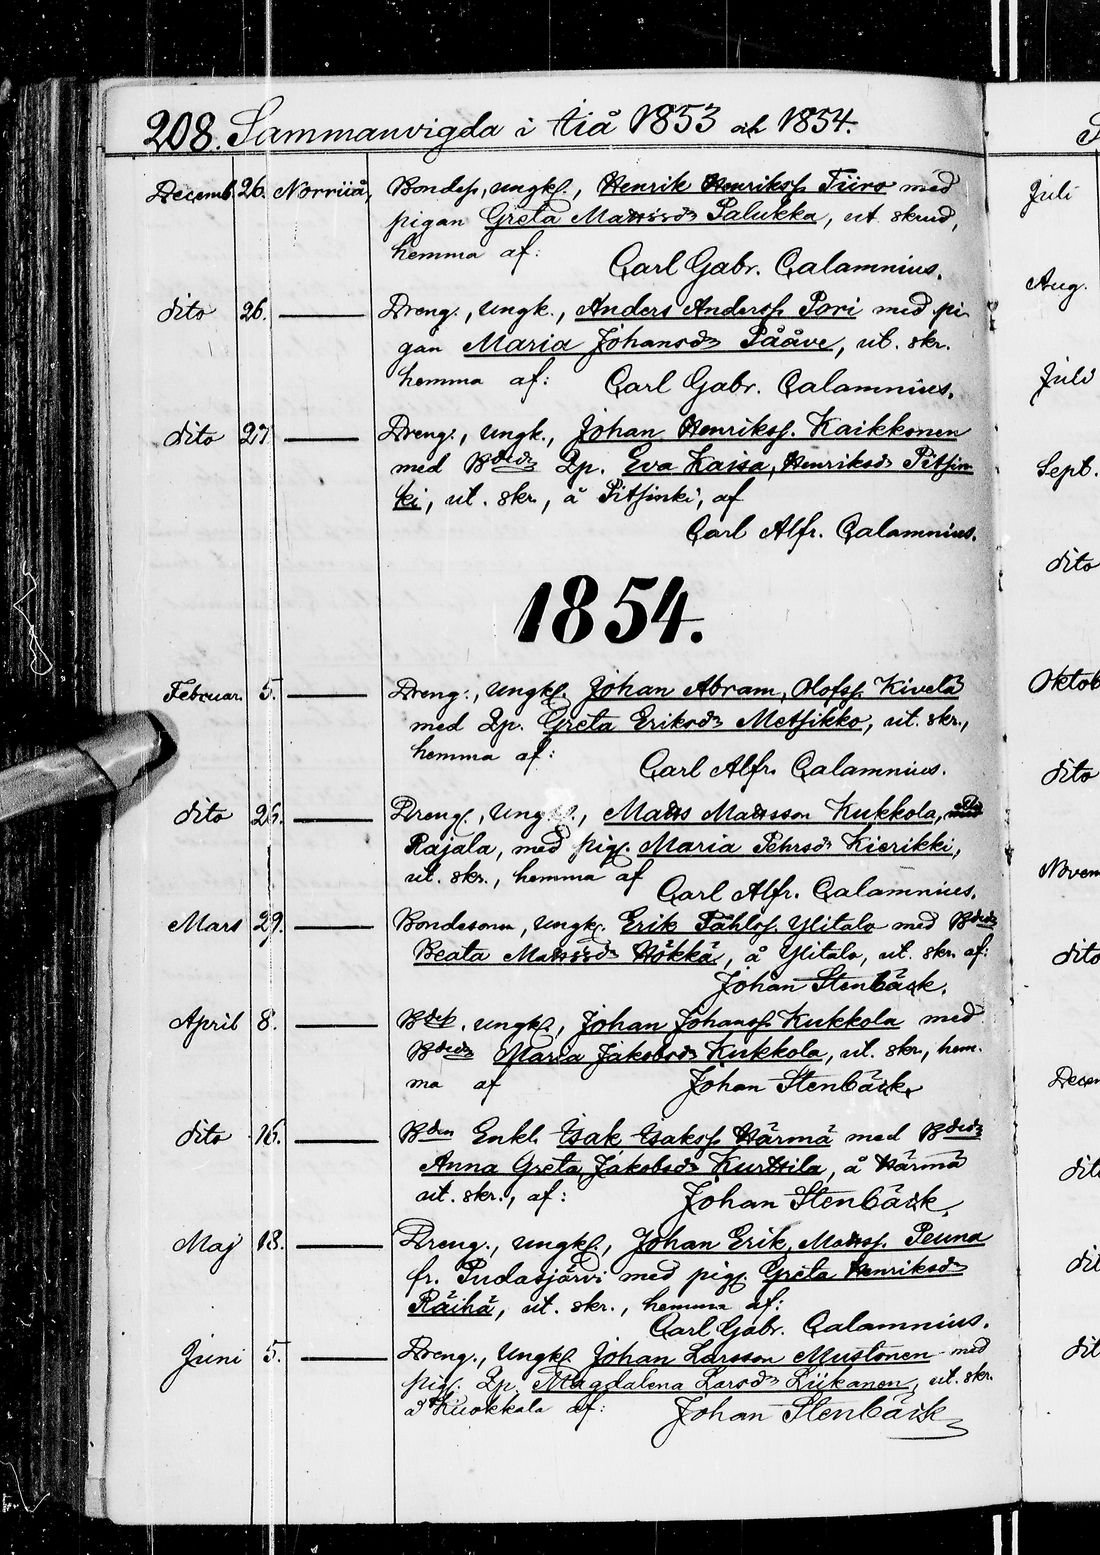 208. Sammanvigda i Iiå 1853 och 1854.
Decemb. 26. Norriiå, Bondes, ungk., Henrik Henrikss. Tiiro med
pigan Greta Matssdr Palukka, ut. skrud,
hemma af:
Carl Gabr. Calamnius.
dito 26. Dreng., ungk., Anders Anderss. Pori med pi-
gan Maria Johansdr Pååve, ut. skr.
hemma af: Carl Gabr. Calamnius.
dito 27 Dreng., ungk., Johan Henrikss. Kaikkonen
med Bdedr Qp. Eva Kaisa, Henriksdr Pitsin
ki, ut. skr., å Pitsinki, af
Carl Alfr. Calamnius.
1854.
Februar. 5. Dreng., ungk. Johan Abram, Olofss. Kivelä
med Qp. Greta Eriksdr Metsikko, ut. skr.,
hemma af:
Carl Alfr. Calamnius.
dito 26. Dreng., ungk., Matts Mattsson Kukkola,
Rajala, med pig. Maria Pehrsdr Kierikki,
ut. skr., hemma af
Carl Alfr. Calamnius.
Mars 29. Bondesonen, ungk. Erik Påhlss. Ylitalo med Bdedr
Beata Matssdr Hökkä, å Ylitalo, ut. skr. af:
Johan Stenbäck.
April 8. Bdes. ungk., Johan Johanss. Kukkola med
Bdedr Maria Jakobsdr Kukkola, ut. skr., hem-
ma af Johan Stenbäck.
dito 16. Bden Enkl. Isak Isakss. Härmä med Bdedr
Anna Greta Jakobsdr Kurttila, å Härmä
ut. skr., af: Johan Stenbäck.
Maj 18. Dreng., ungk., Johan Erik, Matss. Peuna
fr. Pudasjärvi med pig. Greta Henriksdr
Räihä, ut. skr., hemma af:
Carl Gabr. Calamnius.
Juni 5. Dreng., Ungk. Johan Larsson Mustonen med
pig. Qp. Magdalena Larsdr Liikanen, ut. skr.
å Kuokkala af: Johan Stenbäck
Juli
Aug.
Juli
Sept.
dito
Oktob
dito
Novem
dito
Decem
dito
dit
dit